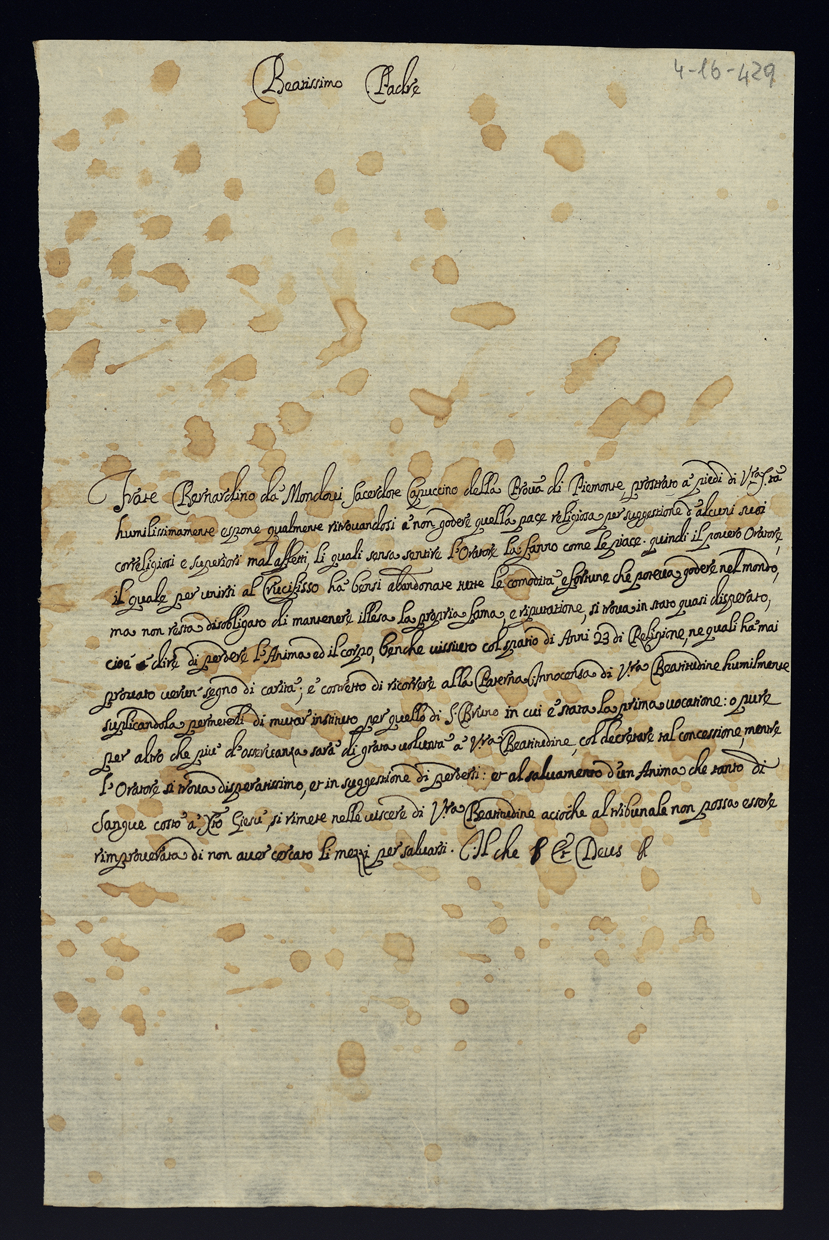 4-16-429
Beatissimo Padre
Frate Bernardino da Mondovi sacerdote Capuccino della Provã di Piemonte, prostrato à piedi di Vrã S.tà
humilissimamente espone qualmente ritrovandosi à non godere quella pace religiosa per suggestione d'alcuni suoi
correligiosi e superiori mal affetti, li quali sensa sentire l'Oratore la fanno come le piace. quindi il povero Oratore,
il quale per unirsi al Crucifisso ha bensi abandonate tutte le comodità e fortune che poteva godere nel mondo,
ma non resta disobligato di mantenere illesa la propria fama e riputatione, si trova in stato quasi disperato,
cioè à dire di perdere l'Anima ed il corpo, benche vissuto col spatio di Anni 23 di Religione, ne quali ha mai
provato verun segno di carita; è constretto di ricorrere alla Paterna Innocensa di Vrã Beatitudine humilmente
suplicandola permeterli di mutar instituto per quello di S. Bruno in cui è stata la prima vocatione: o pure
per altro che piu d'osservanza sarà di grata volunta à Vrã Beatitudine, col decretare tal concessione, mentre
l'Oratore si trova disperatissimo, et in suggestione di perdersi: et al salvamento d'un Anima che tanto di
Sangue costò à Xp̃o Giesù, si rimete nelle viscere di Vrã Beatitudine acioche al tribunale non possa essere
rimproverata di non aver cercato li mezzi per salvarsi. Il che & Et Deus &